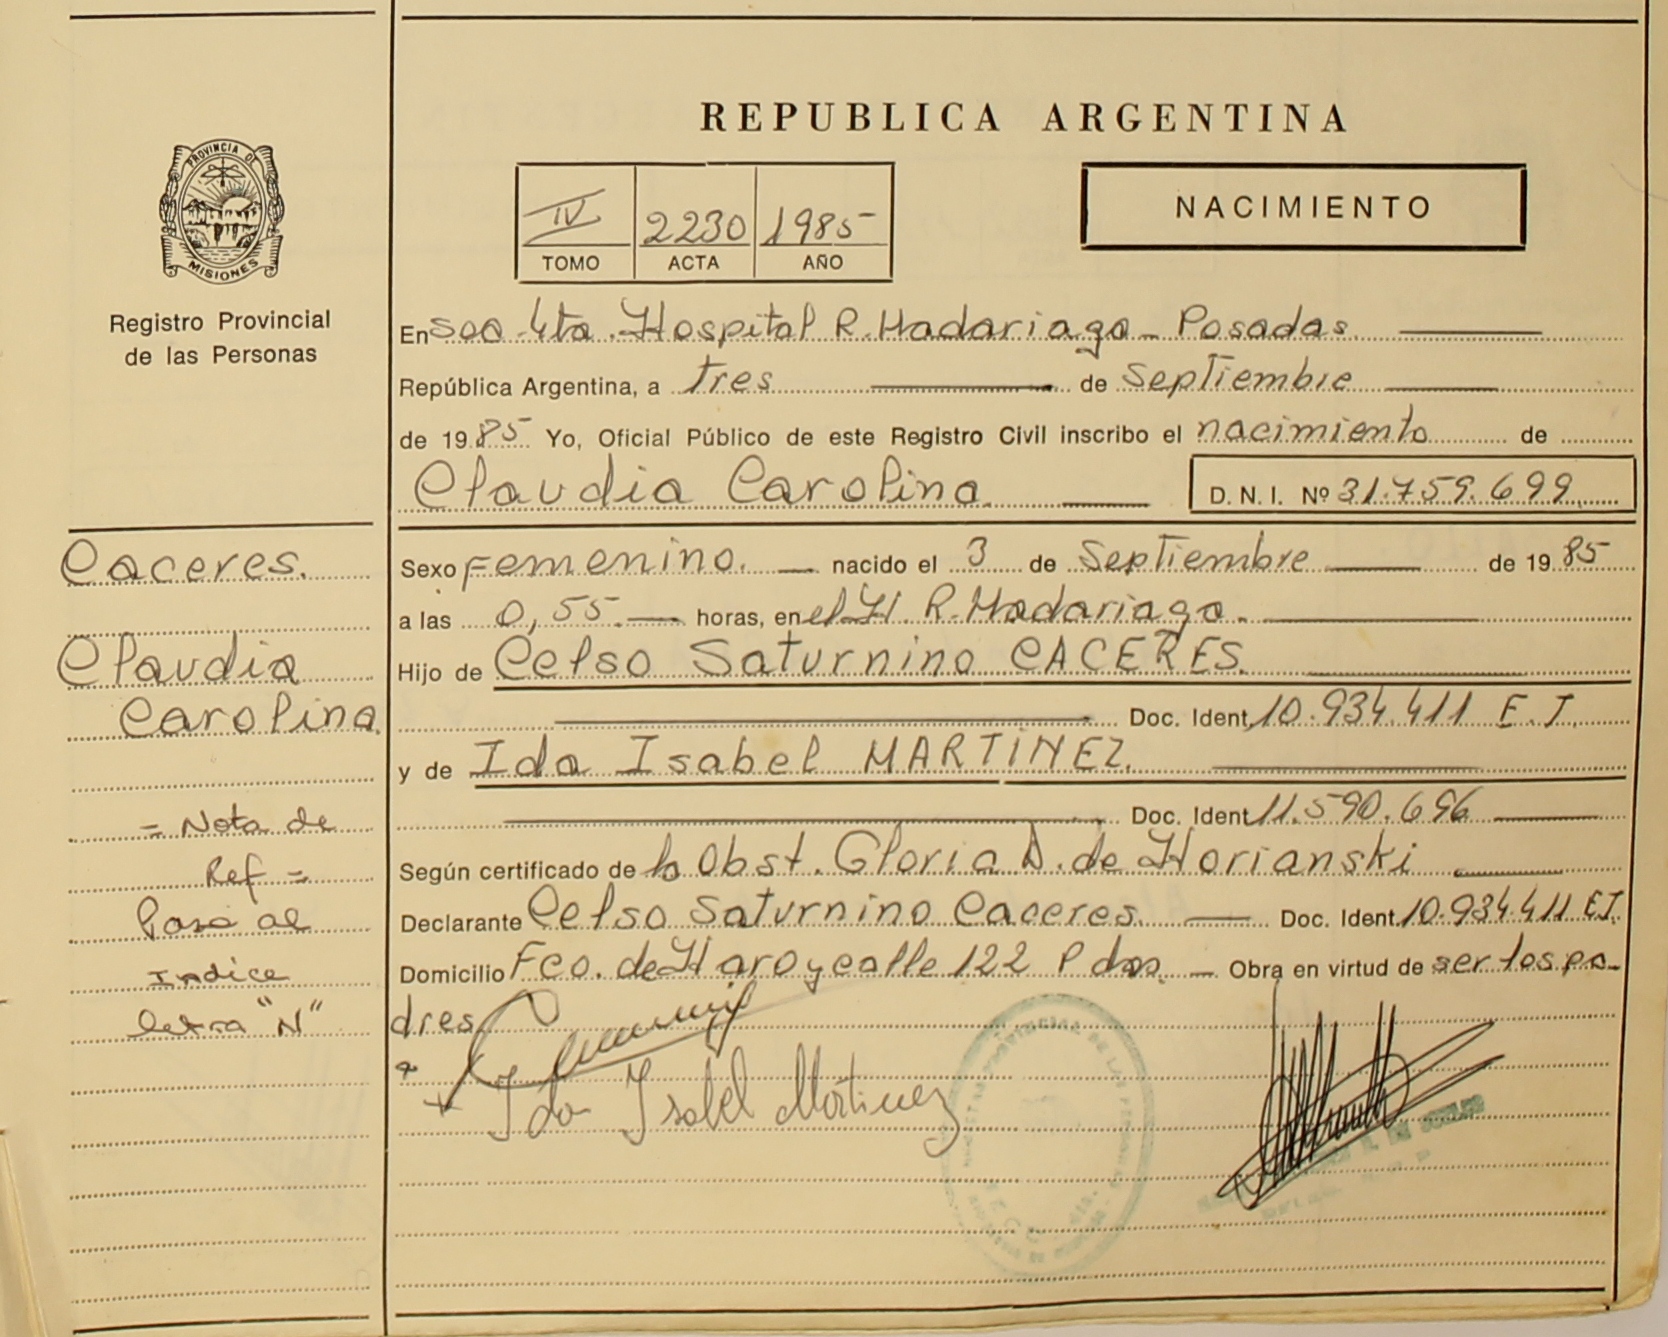 REPUBLICA ARGENTINA
PROVINCIA DE
MISIONES
Registro Provincial
de las Personas
IV 2230 1985
TOMO ACTA AÑO
NACIMIENTO
En Scc 4ta. Hospital R. Madariaga - Posadas.
República Argentina, a tres de Septiembre
de 1985 Yo, Oficial Público de este Registro Civil inscribo el nacimiento de
Claudia Carolina D.N.I. Nº 31.759.699
Caceres.
Claudia
Carolina
= Nota de
Ref =
Pasa al
Indice
letra "N"
Sexo Femenino. nacido el 3 de Septiembre de 1985
a las 0,55 horas, en el H. R. Madariaga.
Hijo de Celso Saturnino CACERES.
Doc. Ident. 10.934.411 E.T.
y de Ida Isabel MARTINEZ.
Doc. Ident. 11.590.696
Según certificado de la Obst. Gloria D. de Horianski
Declarante Celso Saturnino Caceres. Doc. Ident. 10.934.411 E.T.
Domicilio Fco. de Haro y calle 122 Pdas. Obra en virtud de ser los pa-
dres
Ida Isabel Martinez